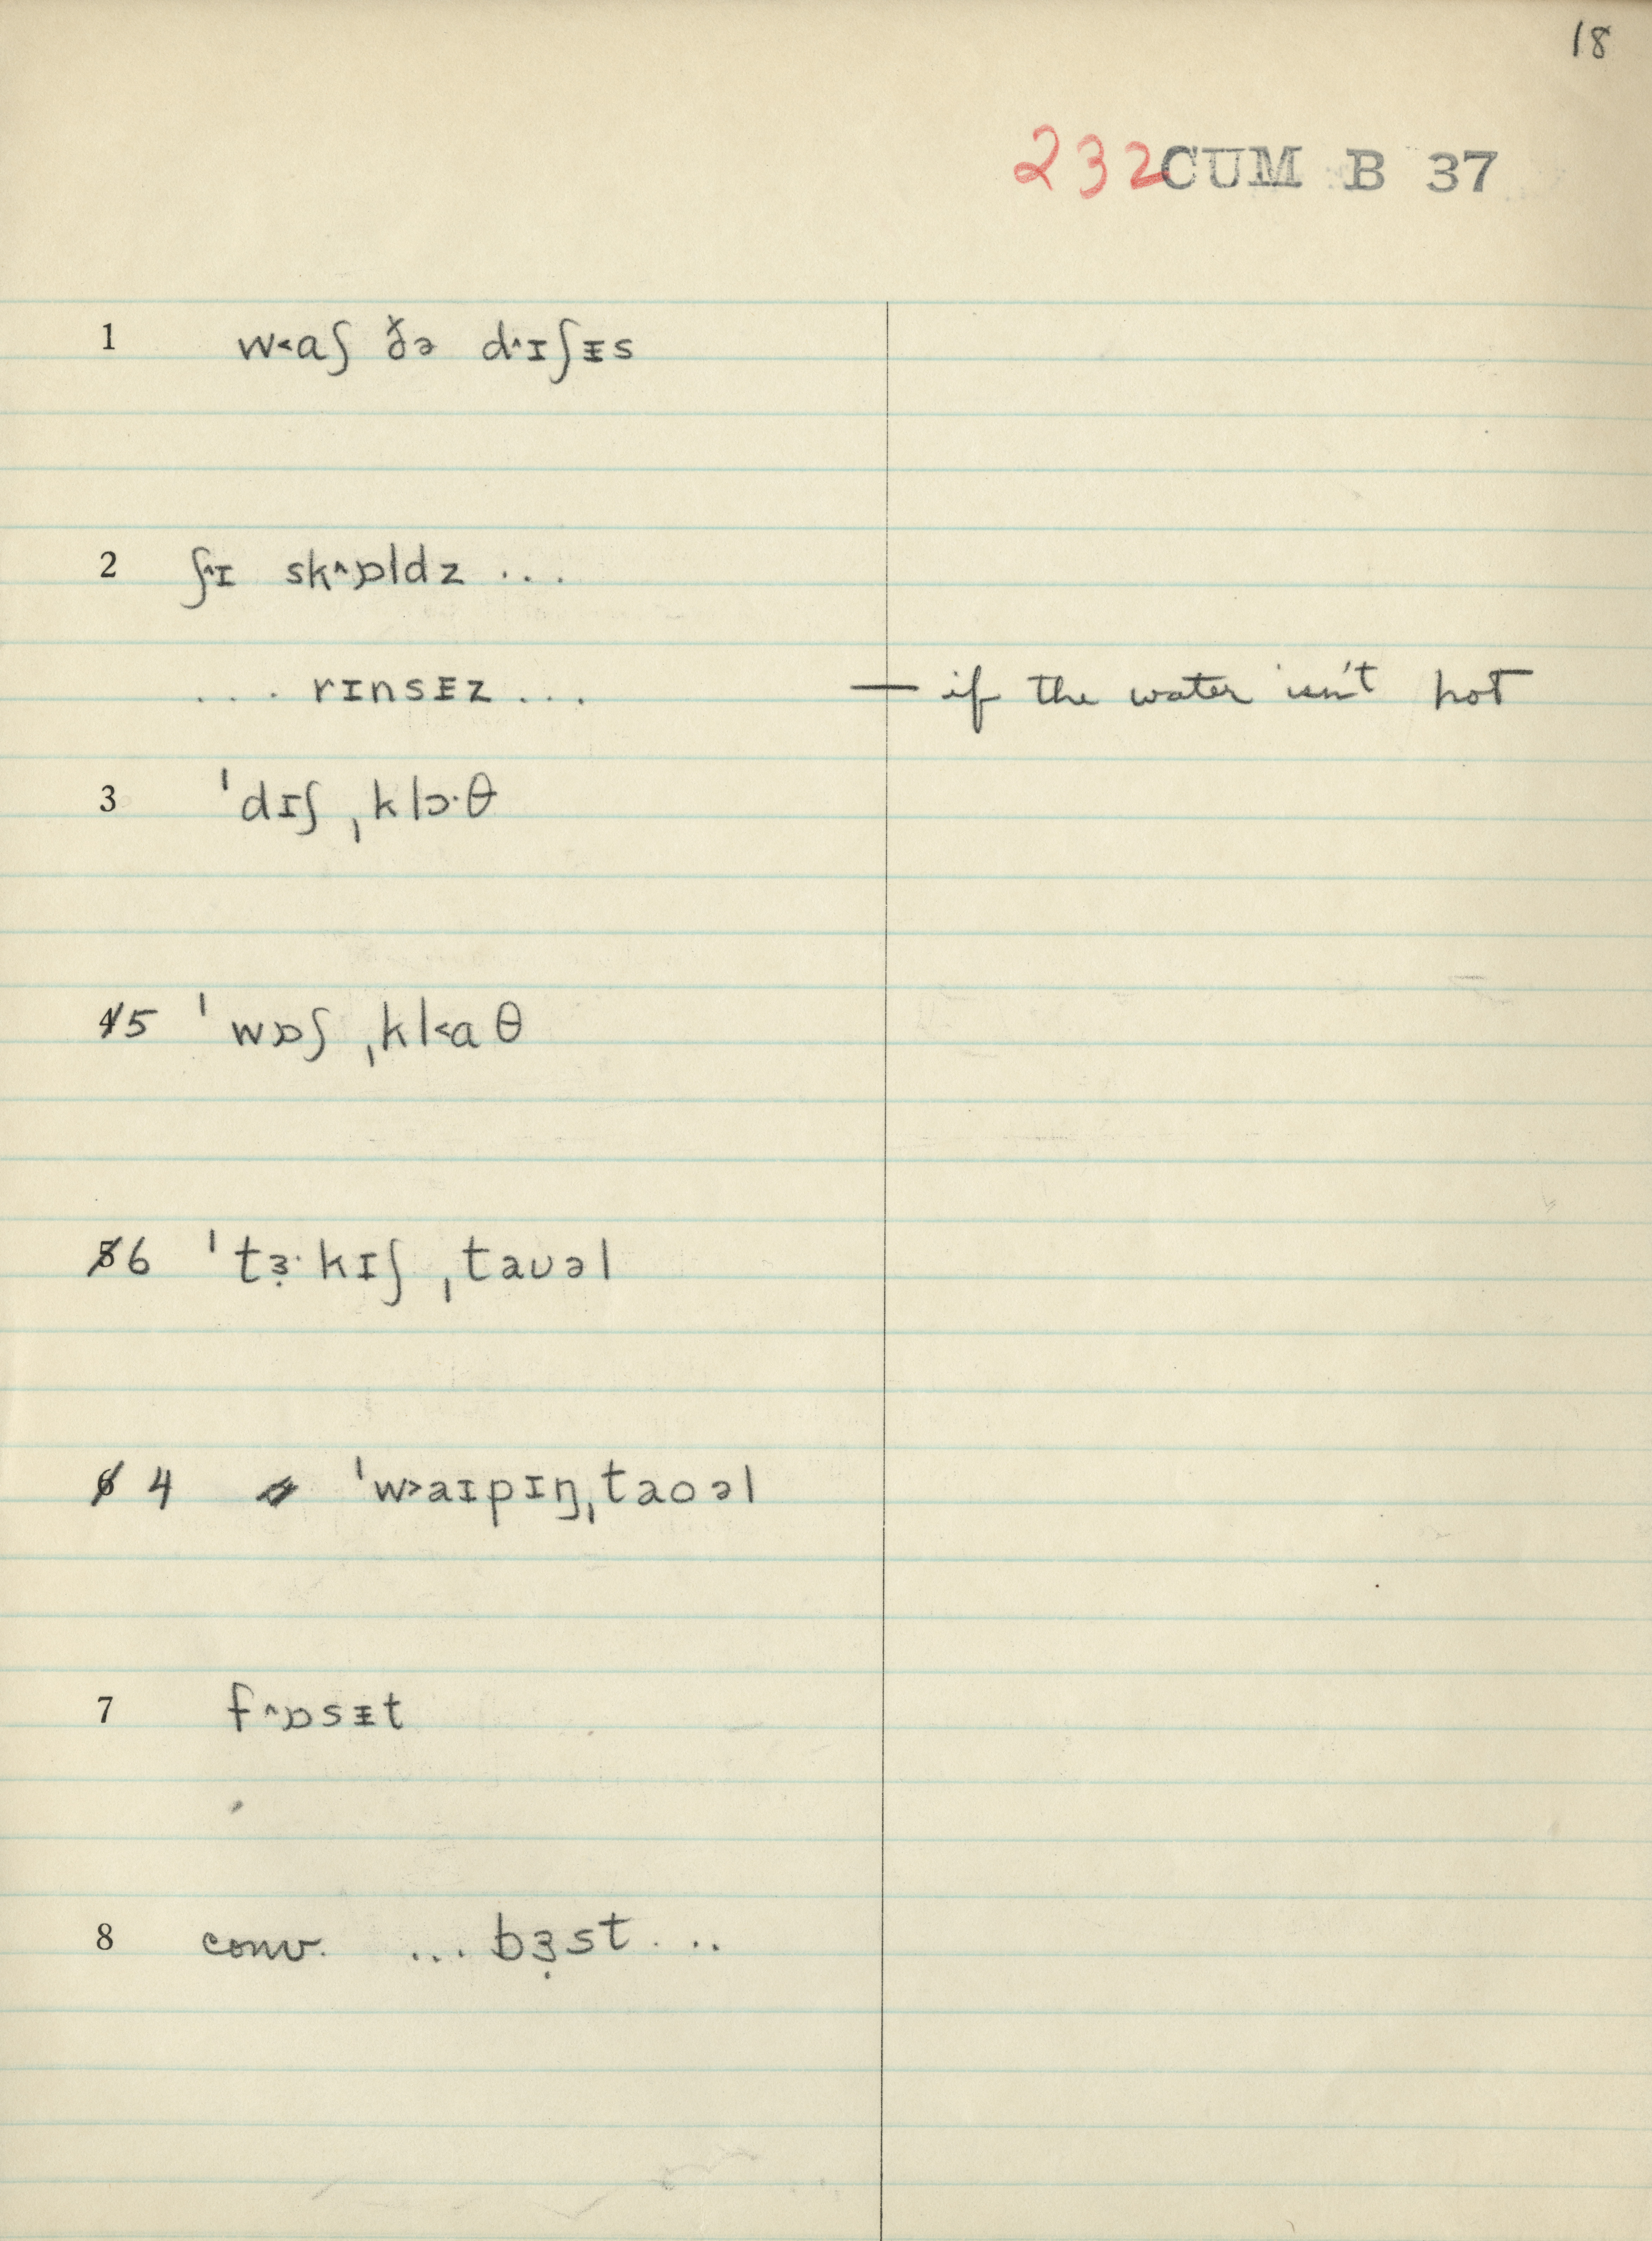 18
232 CUM B 37
1 w˂aʃ ðə d˄ɪʃᵻs
2 ʃ˄ɪ sk˄ɒldz ...
... rɪnsᵻz ... — if the water isn't hot
3 ˈdɪʃ ˌklɔ·θ
4 5 ˈwɒʃ ˌkl˂aθ
5 6 ˈtɜ̣·kɪʃ ˌtaʊəl
6 4 ˈw˃aɪpɪŋˌtaoəl
7 f˄ɒsᵻt
8 conv. ... bɜ̣st ...